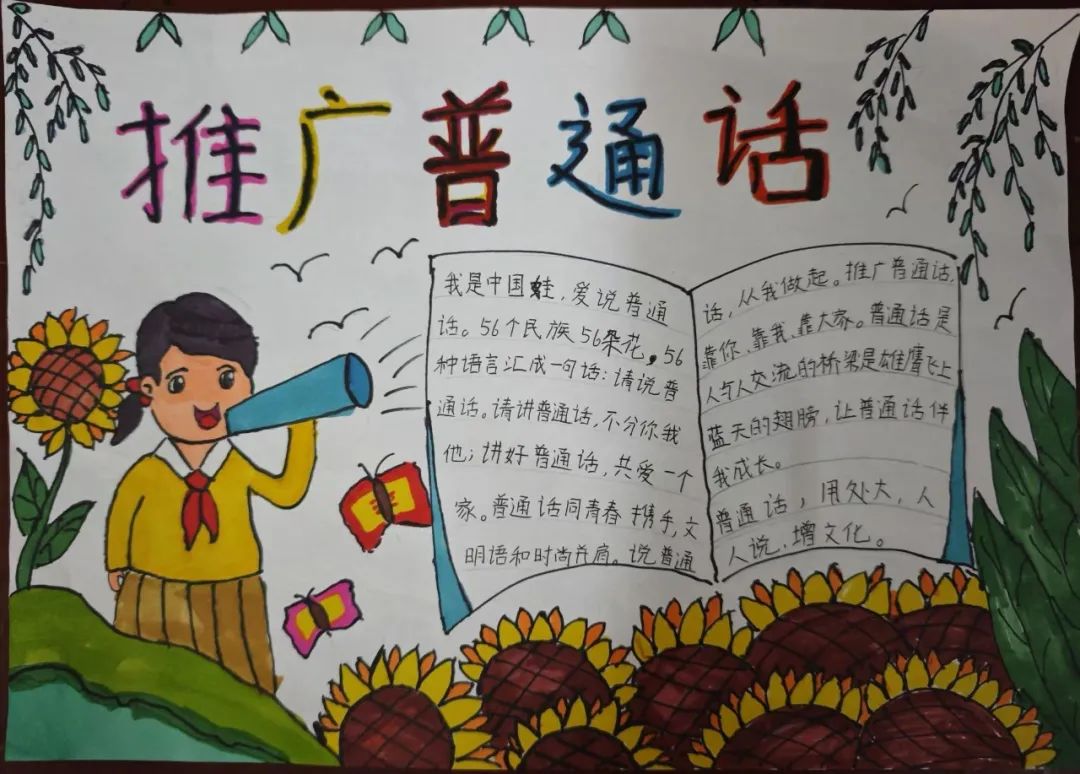 推广普通话
我是中国蛙，爱说普通
话。56个民族56朵花，56
种语言汇成一句话：请说普
通话。请讲普通话，不分你我
他；讲好普通话，共爱一个
家。普通话同青春携手，文
明语和时尚并肩。说普通
话，从我做起。推广普通话，
靠你、靠我、靠大家。普通话是
人与人交流的桥梁是雄鹰飞上
蓝天的翅膀，让普通话伴
我成长。
普通话，用处大，人
人说，增文化。